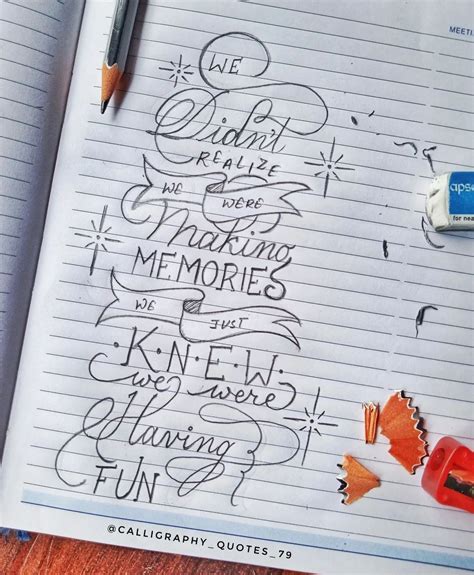 MEETI
WE
Didn't
REALIZE
WE WERE
Making
MEMORIES
WE JUST
•K•N•E•W•
we were
Having
FUN
apsa
for nea
@CALLIGRAPHY_QUOTES_79